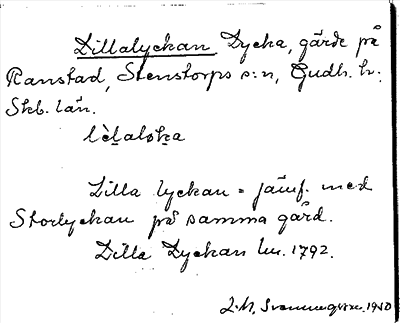 Lillalyckan Lycka, gärde på
Ranstad, Stenstorps s:n, Gudh. hr.
Skb. län.
Lilla lyckan = jämf. med
Storlyckan på samma gård.
Lilla Lyckan lm. 1792.
1910